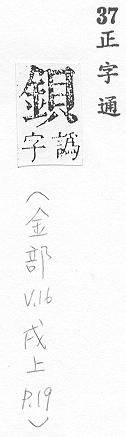 37 正字通
譌
字
(金部 V.16 戌上 P.19)